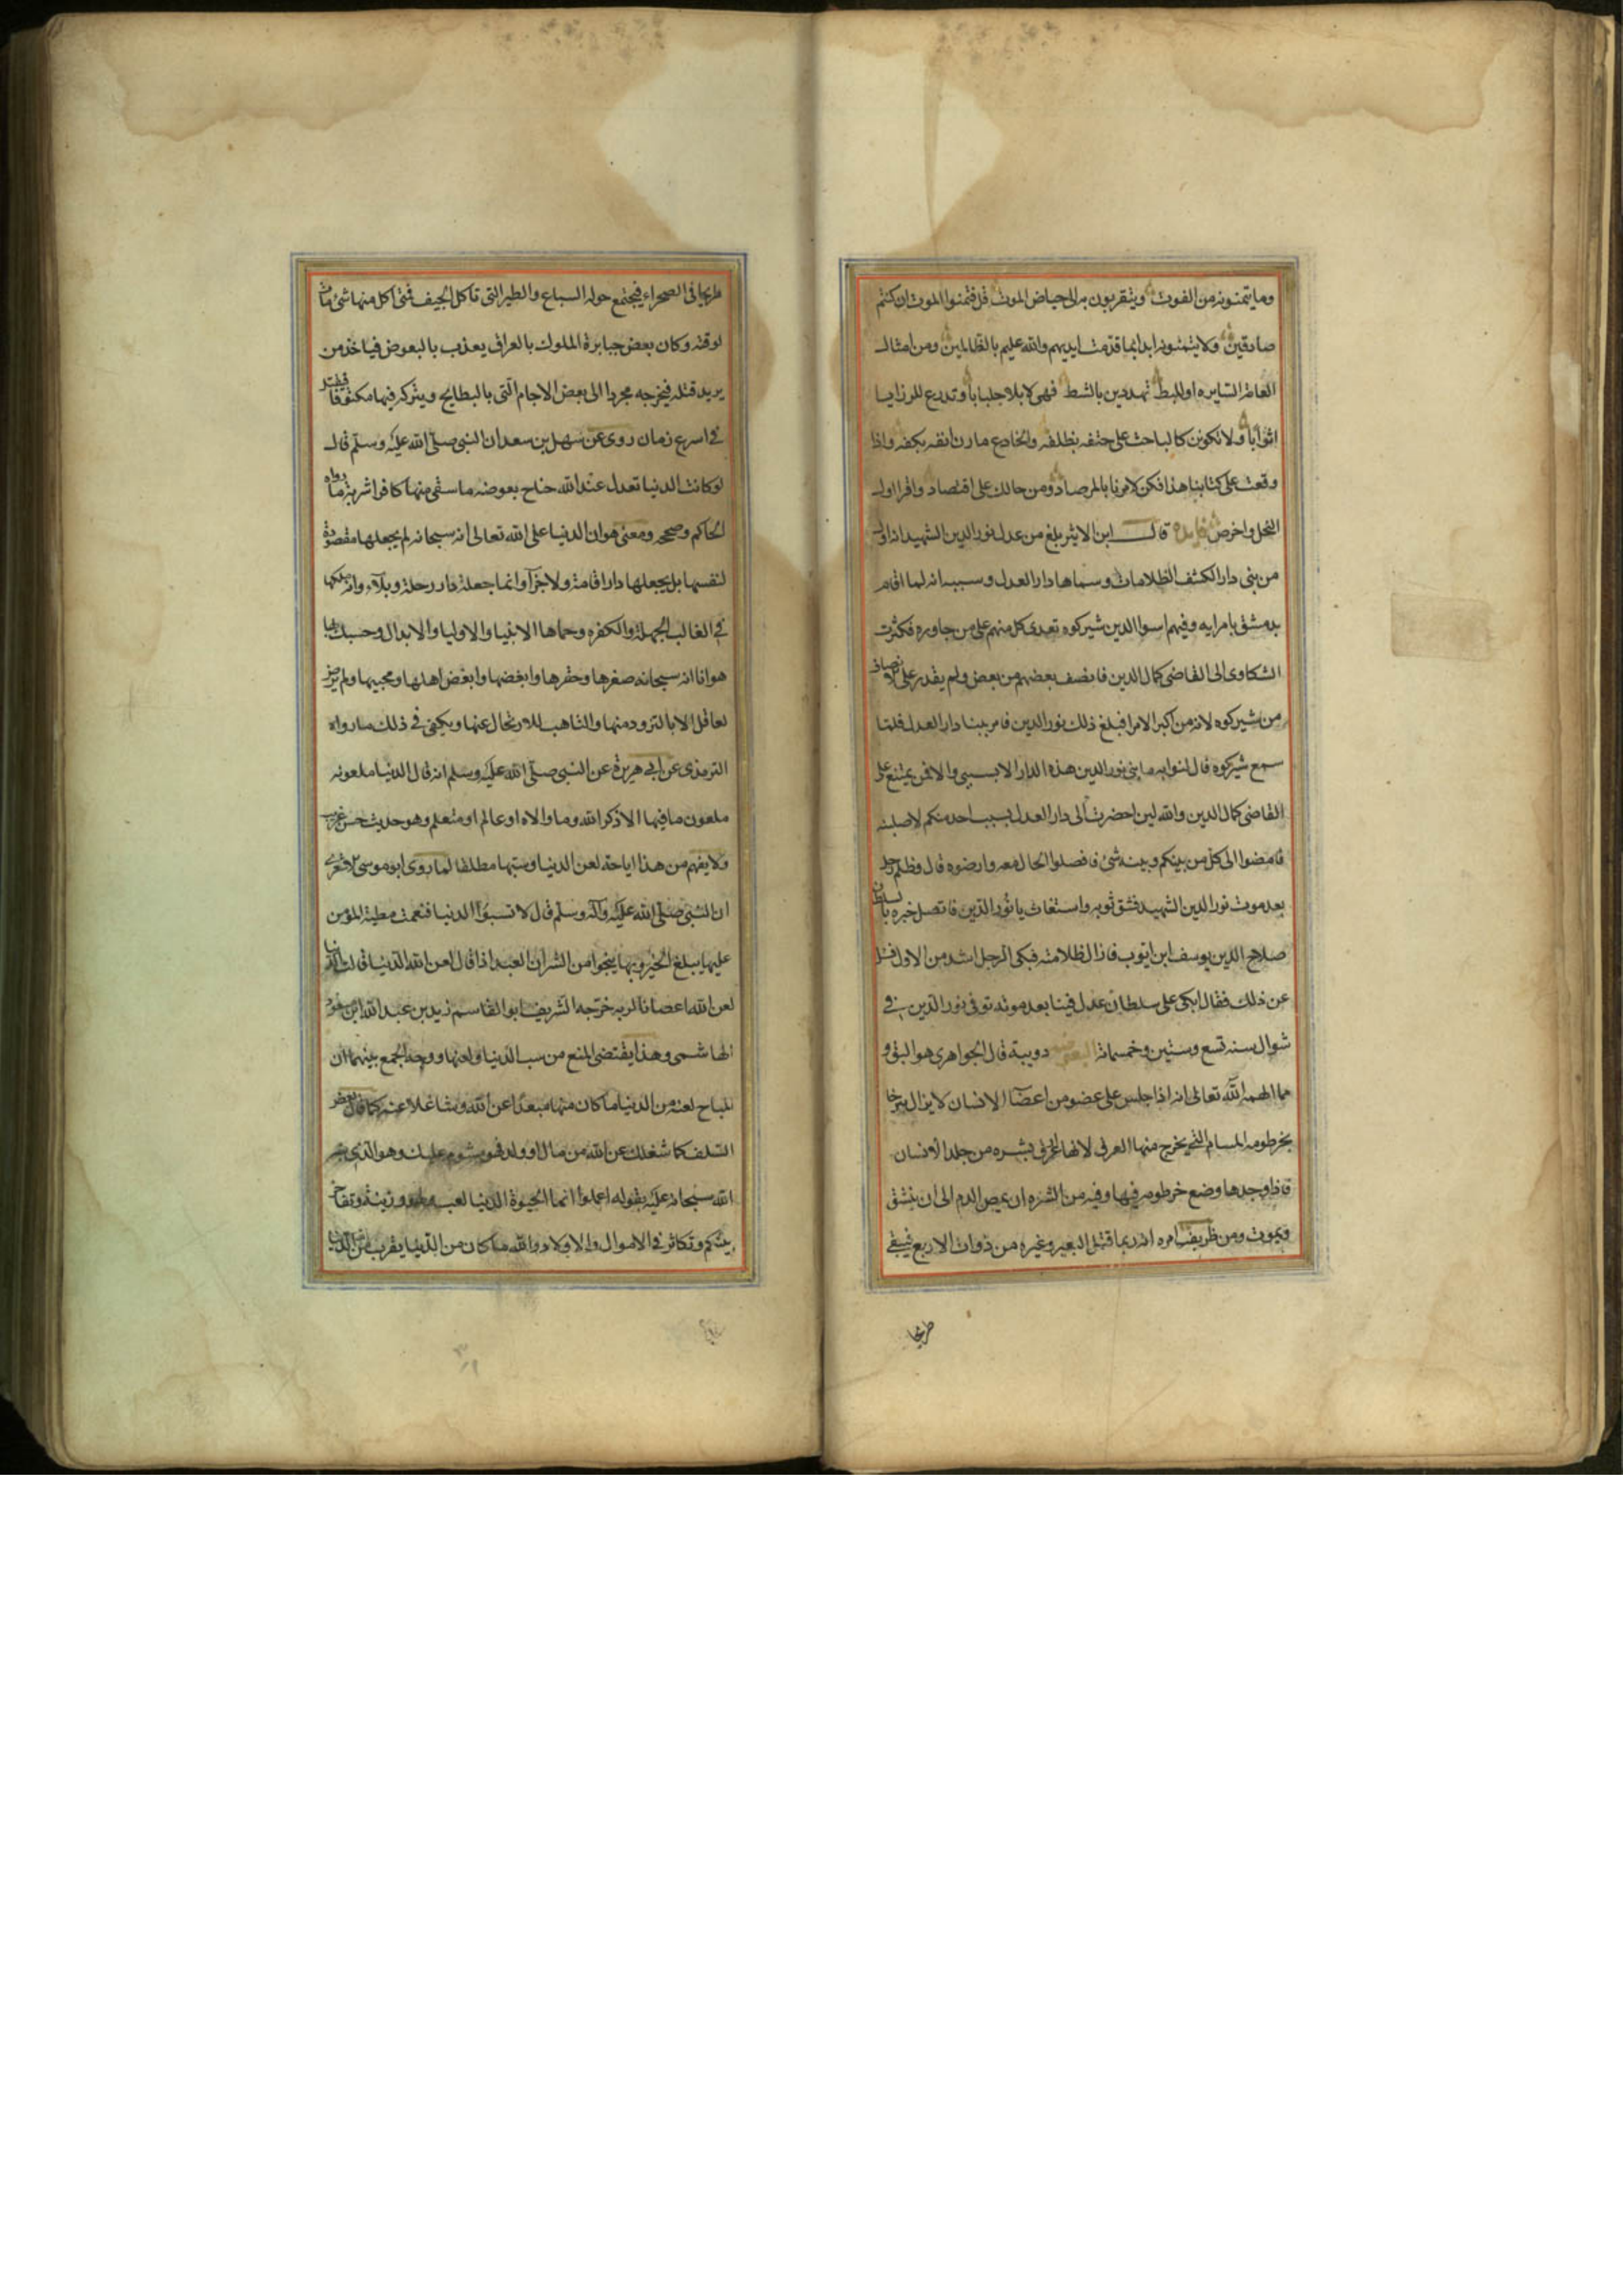 وما يتمنونه من الفوت ويتقربون به الى حياض الموت قل فتمنوا الموت ان كنتم
صادقين ولا يتمنونه ابدا بما قدمت ايديهم والله عليم بالظالمين ومن امثال
العامة السايره اوللبط تهددين بالشط فهى لابلا جلبابا وتدرع للرزايا
اثوابا ولا تكونن كالباحث على حتفه بظلفه والجادع مارن انفه بكفه واذا
وقعت على كتابنا هذا فكن لامرنا بالمرصاد ومن حالك على اقتصاد واقرا اول
النحل واخر ص فايده قال ابن الاثير بلغ من عدل نور الدين الشهيد انه اول
من بنى دار الكشف الظلامات وسماها دار العدل وسببه انه لما اقام
بدمشق بامرايه وفيهم اسوا الدين شيركوه تعدى كل منهم على من جاوره فكثرت
الشكاوى الى القاضى كمال الدين فانصف بعضهم من بعض ولم يقدر على الانصاف
من شيركوه لانه من اكبر الامرا فبلغ ذلك نور الدين فامر ببنا دار العدل فلما
سمع شيركوه قال لنوابه ما بنى نور الدين هذه الدار الا بسببى والا فمن يمتنع على
القاضى كمال الدين والله لين احضرت الى دار العدل بسبب احد منكم لاصلبنه
فامضوا الى كل من بينكم وبينه شئ فافصلوا الحال معه وارضوه قال وظلم رجل
بعد موت نور الدين الشهيد فشق ثوبه واستغاث يا نور الدين فاتصل خبره بالسلطان
صلاح الدين يوسف ابن ايوب فازال ظلامته فبكى الرجل اشد من الاول فسئل
عن ذلك فقال ابكى على سلطان عدل فينا بعد موته توفى نور الدين فى
شوال سنه تسع وستين وخمسمائة البعوض دويبة قال الجواهرى هو البق و
مما الهمه الله تعالى انه اذا جلس على عضو من اعضا الانسان لا يزال يتوخا
بخرطومه المسام التى يخرج منها العرق لانها ارق بشره من جلد الانسان
فاذا وجدها وضع خرطومه فيها وفيه من الشره ان يمص الدم الى ان ينشق
ويموت ومن ظريف امره انه ربما قتل البعير وغيره من ذوات الاربع فيبقى
طريحا
طريحا فى الصحراء فيجتمع حوله السباع والطير التى تاكل الجيف فمتى اكل منها شئ مات
لوقته وكان بعض جبابرة الملوك بالعراق يعذب بالبعوض فياخذ من
يريد قتله فيخرجه مجردا الى بعض الاجام التى بالبطايح ويتركه فيها مكتوفا فيقتل
فى اسرع زمان روى عن سهل بن سعد ان النبى صلى الله عليه وسلم قال
لو كانت الدنيا تعدل عند الله جناح بعوضه ما سقى منها كافرا شربة ما رواه
الحاكم وصححه ومعنى هوان الدنيا على الله تعالى انه سبحانه لم يجعلها مقصودة
لنفسها بل يجعلها دار اقامة ولا جزآ وانما جعلة دار رحلة وبلآء وانه ملكها
فى الغالب الجهلة والكفره وحماها الانبيا والاوليا والابدال وحسبك بها
هوانا انه سبحانه صغرها وحقرها وابغضها وابغض اهلها ومحبيها ولم يرض
لعاقل الا بالتزود منها والتاهب للارتحال عنها ويكفى فى ذلك ما رواه
الترمذى عن ابى هريرة عن النبى صلى الله عليه وسلم انه قال الدنيا ملعونه
ملعون ما فيها الا ذكر الله وما والاه او عالم او متعلم وهو حديث حسن غريب
ولا يفهم من هذا اباحة لعن الدنيا وسبها مطلقا لما روى ابو موسى الاشعرى
ان النبى صلى الله عليه وآله وسلم قال لا تسبوا الدنيا فنعمت مطية المؤمن
عليها يبلغ الخير وبها ينجوا من الشر ان العبد اذا قال لعن الله الدنيا قالت الدنيا
لعن الله اعصانا لربه خرجه الشريف ابو القاسم زيد بن عبد الله ابن مسعود
الهاشمى وهذا يقتضى المنع من سب الدنيا ولعنها ووجه الجمع بينهما ان
المباح لعنه من الدنيا ما كان منها مبعدا عن الله وشاغلا عنه كما قال بعض
السلف كلما شغلك عن الله من مال او ولد فهو مشوم عليك وهو الذى نبه
الله سبحانه عليه بقوله اعلموا انما الحيوة الدنيا لعب ولهو وزينة وتفاخر
بينكم وتكاثر فى الاموال والاولاد والله ما كان من الدنيا يقرب من